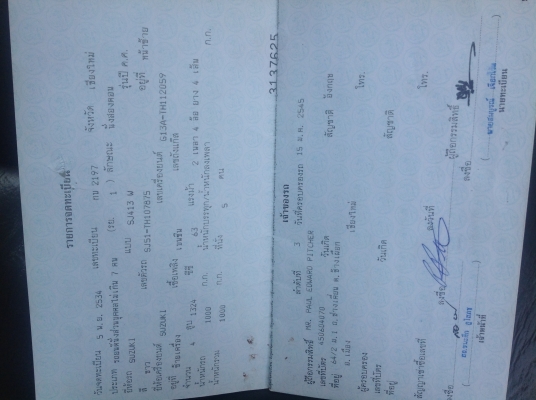 รายการจดทะเบียน
วันจดทะเบียน 5 พ.ย. 2534 เลขทะเบียน กบ 2197 จังหวัด เชียงใหม่
ประเภท รถยนต์นั่งส่วนบุคคลไม่เกิน 7 คน (รย. 1 ) ลักษณะ นั่งสองตอน
ยี่ห้อรถ SUZUKI แบบ SJ413 W รุ่นปี ค.ศ.
สี ขาว เลขตัวรถ SJ51-TH107875 อยู่ที่ หน้าซ้าย
ยี่ห้อเครื่องยนต์ SUZUKI เลขเครื่องยนต์ G13A-TH112059
อยู่ที่ เชื้อเพลิง เบนซิน เลขถังแก๊ส
จำนวน 4 สูบ 1324 ซีซี 63 แรงม้า 2 เพลา 4 ล้อ ยาง 4 เส้น
น้ำหนักรถ 1000 ก.ก. น้ำหนักบรรทุก/น้ำหนักลงเพลา ก.ก.
น้ำหนักรวม 1000 ก.ก. ที่นั่ง 5 คน
3137625
เจ้าของรถ
ลำดับที่ 3 วันที่ครอบครองรถ 15 2545
ผู้ถือกรรมสิทธิ์ MR. PAUL EDWARD PITCHER
เลขที่บัตร 450604070 วันเกิด สัญชาติ อังกฤษ
ที่อยู่ 64/2 ม.1 ต.ช้างเผือก
อ.เมือง เชียงใหม่ โทร.
ผู้ครอบครอง
เลขที่บัตร วันเกิด สัญชาติ
ที่อยู่ โทร.
สัญญาเช่าซื้อเลขที่ ลงวันที่ ผู้ถือกรรมสิทธิ์
ลงชื่อ ลงชื่อ ลงชื่อ
เจ้าหน้าที่ นายทะเบียน